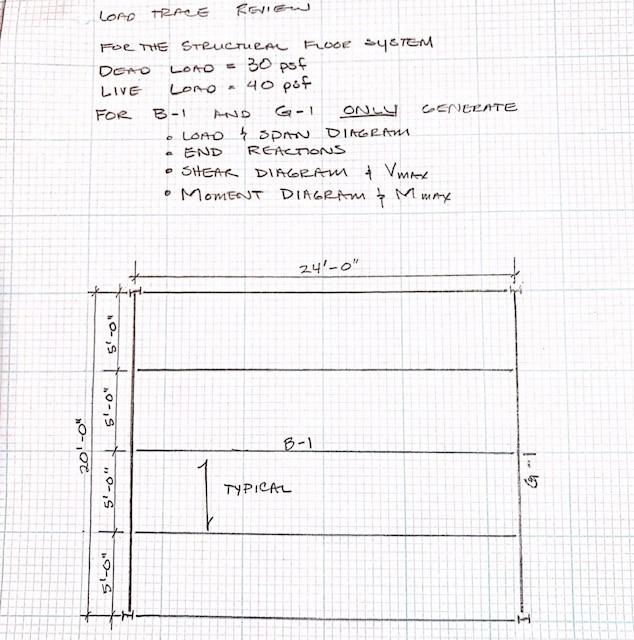 LOAD TRACE REVIEW
FOR THE STRUCTURAL FLOOR SYSTEM
DEAD LOAD = 30 psf
LIVE LOAD = 40 psf
FOR B-1 AND G-1 ONLY GENERATE
• LOAD & SPAN DIAGRAM
• END REACTIONS
• SHEAR DIAGRAM & VMAX
• MOMENT DIAGRAM & MMAX
24'-0"
5'-0"
5'-0"
20'-0"
B-1
G-1
5'-0"
TYPICAL
5'-0"